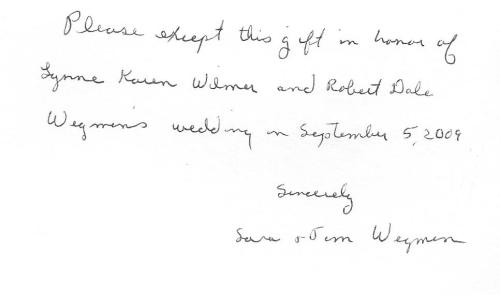 Please except this gift in honor of
Lynne Karen Wilmer and Robert Dale
Wegmen's wedding on September 5, 2009
Sincerely
Sara & Jim Wegmen